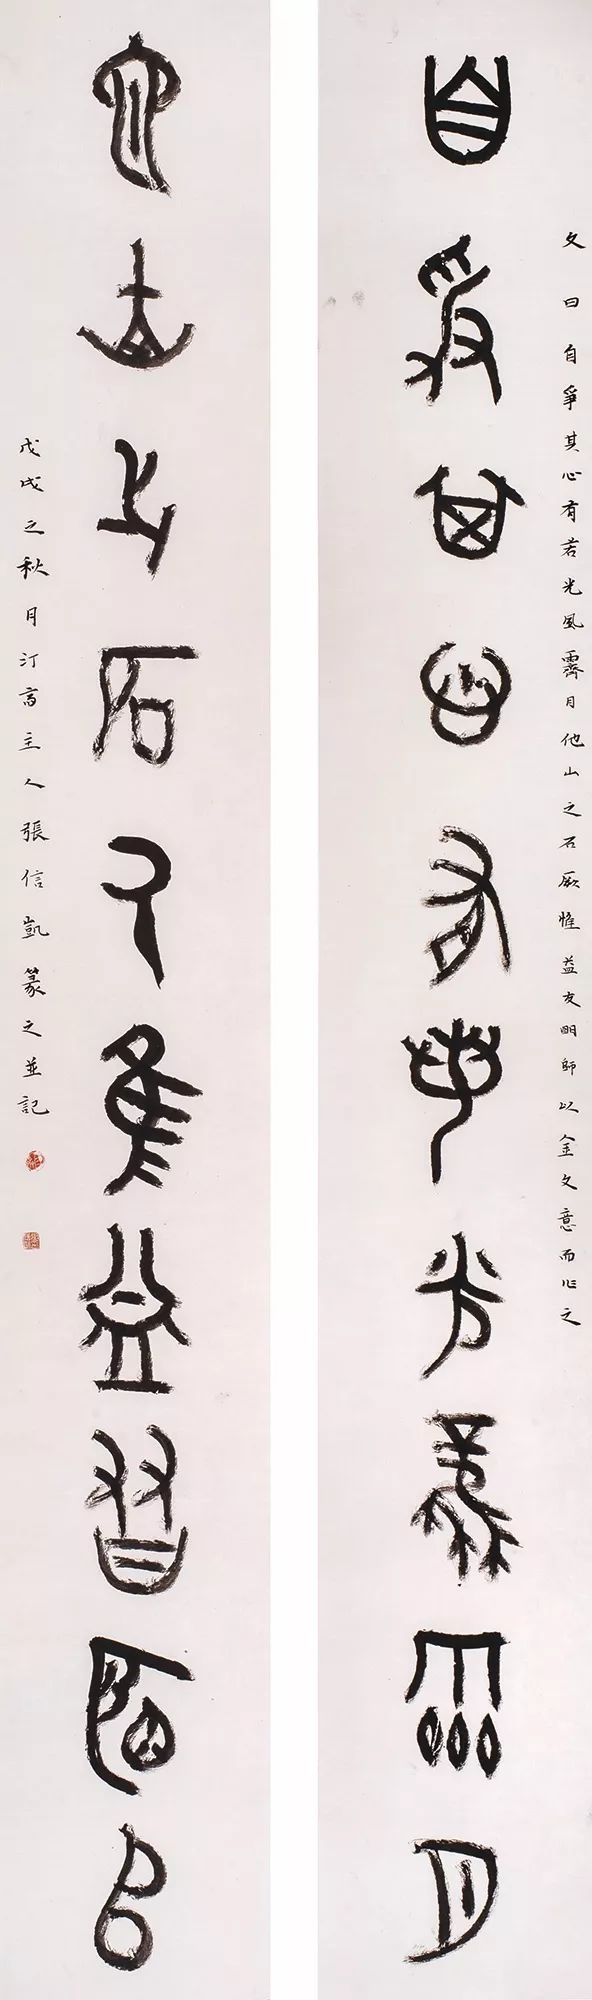 文曰自爭其心有若光風霽月他山之石厥惟益友明師以金文意而作之
自爭其心有若光風霽月
它山之石氒隹益友明師
戊戌之秋月汀齋主人張信凱篆之並記